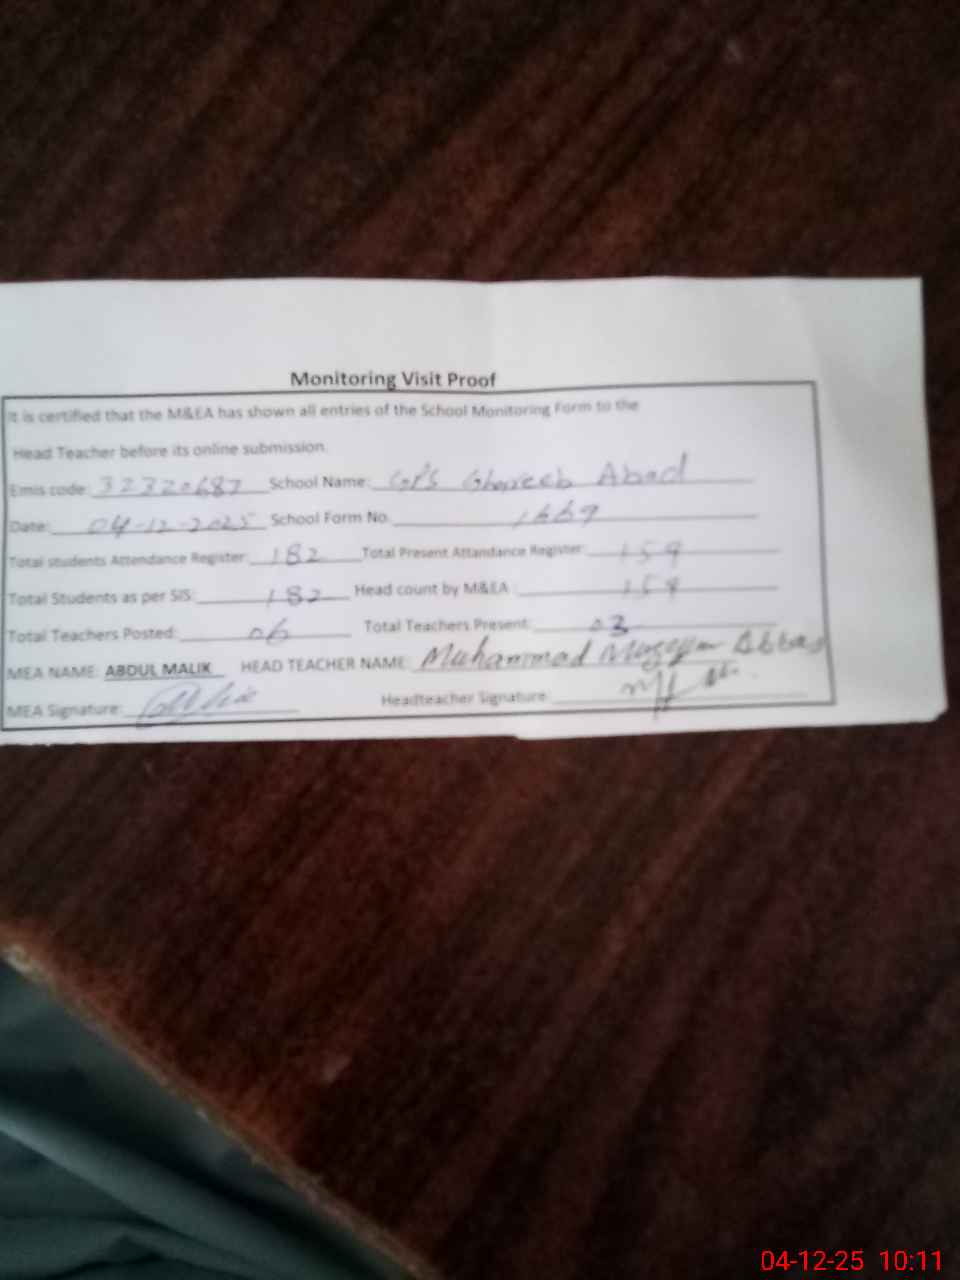 Monitoring Visit Proof
It is certified that the M&EA has shown all entries of the School Monitoring Form to the
Head Teacher before its online submission.
Emis code: 32320687 School Name: GPS Ghareeb Abad
Date: 04-12-2025 School Form No. 1669
Total students Attendance Register: 182 Total Present Attandance Register: 159
Total Students as per SIS: 182 Head count by M&EA: 159
Total Teachers Posted: 06 Total Teachers Present: 03
MEA NAME: ABDUL MALIK HEAD TEACHER NAME: Muhammad Abbas
MEA Signature: Headteacher Signature:
04-12-25 10:11